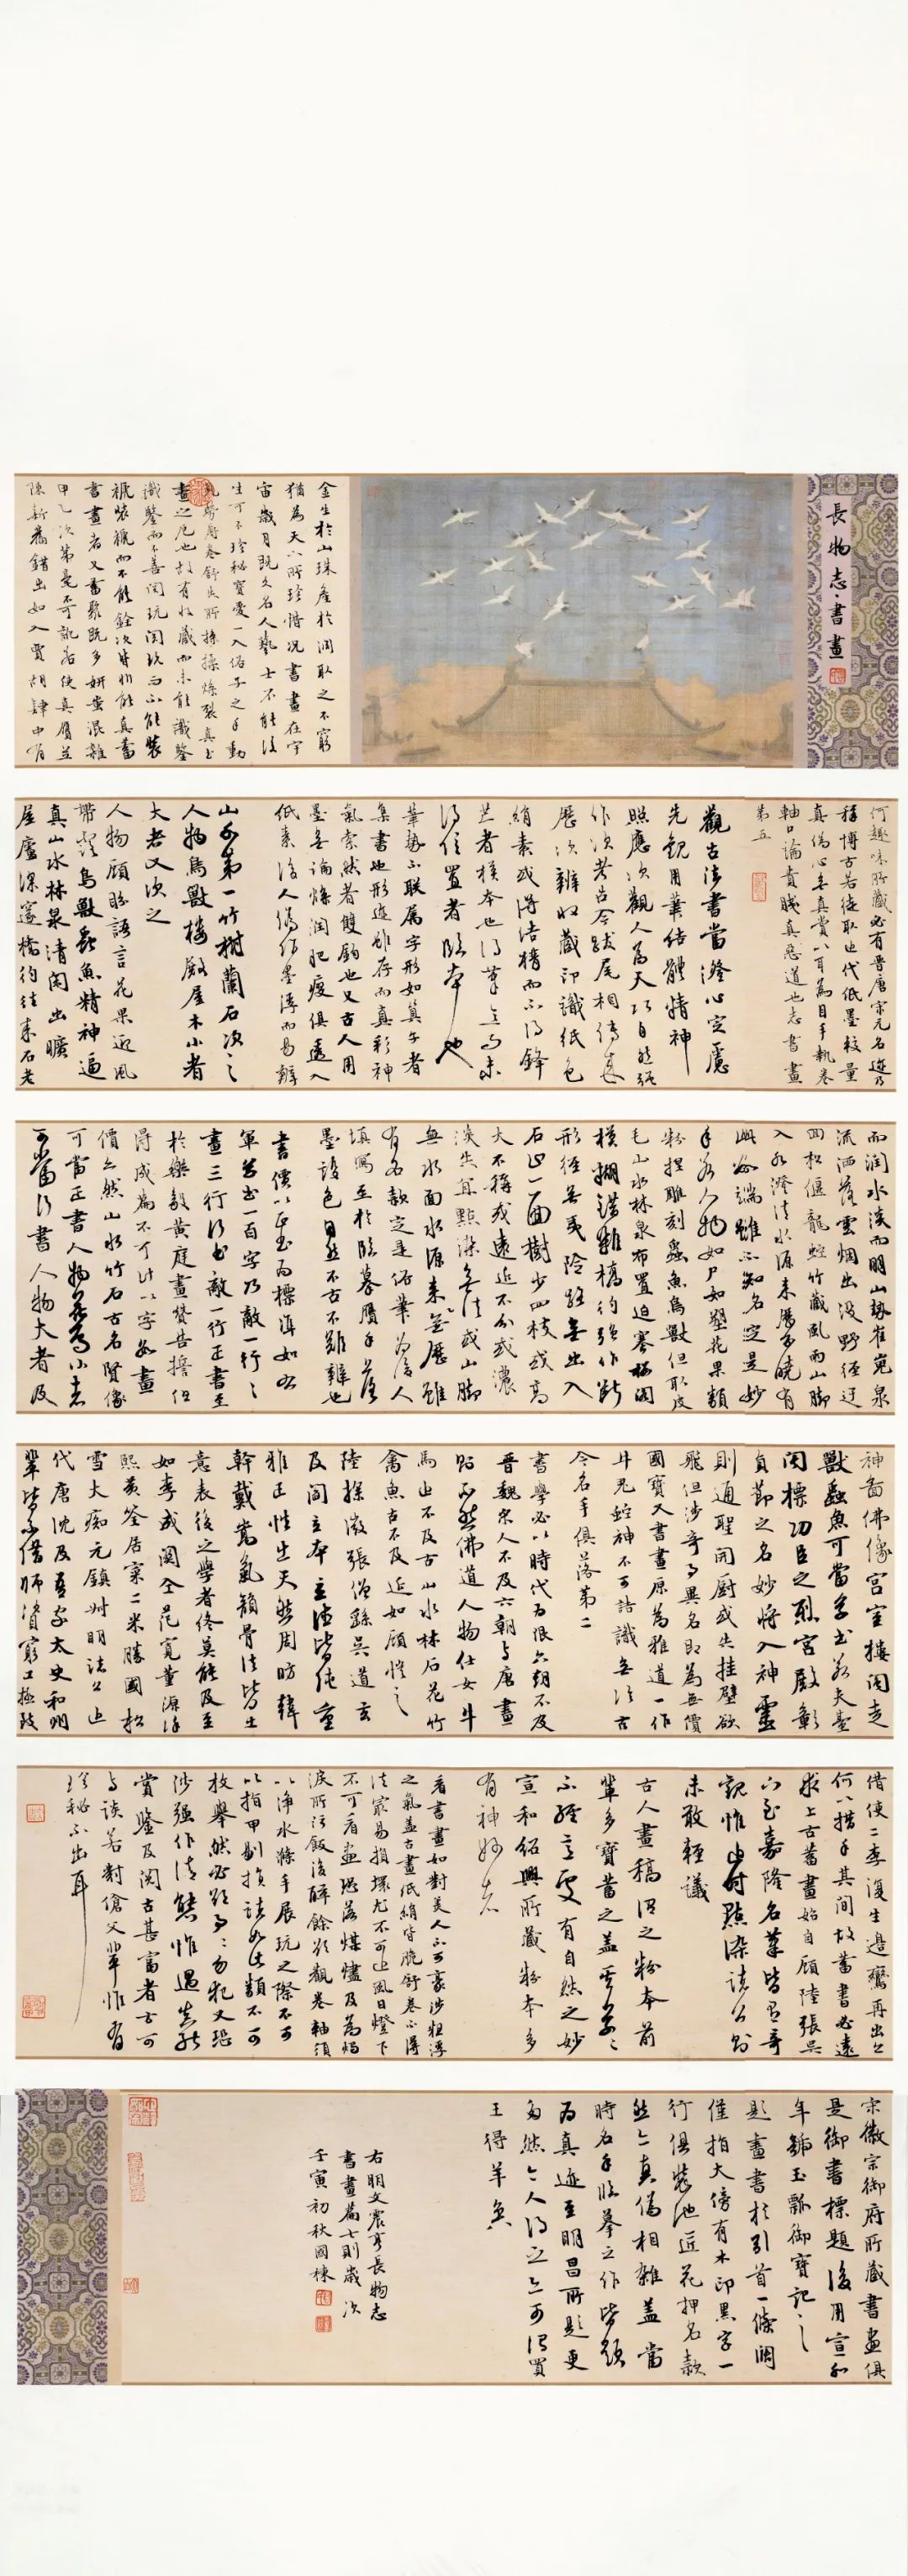 長物志·書畫
金生於山珠產於淵取之不窮
猶為天下所珍惜況書畫在宇
宙歲月既久名人藝士不能復
生可不珍秘寶愛一入俗子之手動
見勞辱卷舒失所操揉燥裂真書
畫之厄也故有收藏而未能識鑒
識鑒而不善閱玩閱玩而不能裝
褫裝褫而不能銓次皆非能真蓄
書畫者又蓄聚既多妍蚩混雜
甲乙次第毫不可訛若使真贗並
陳新舊錯出如入賈胡肆中有
何趣味所藏必有晉唐宋元名跡乃
稱博古若徒取近代紙墨較量
真偽心無真賞以耳為目手執卷
軸口論貴賤真惡道也志書畫
第五
觀古法書當澄心定慮
先觀用筆結體精神
照應次觀人為天巧自然強
作次考古今跋尾相傳來
歷次辨收藏印識紙色
絹素或得結構而不得鋒
芒者模本也得筆意而未
得位置者臨本也
筆勢不聯屬字形如算子者
集書也形跡雖存而真彩神
氣索然者雙鉤也又古人用
墨無論燥潤肥瘦俱透入
紙素後人偽作墨浮而易辨
山水第一竹樹蘭石次之
人物鳥獸樓殿屋木小者
大者又次之
人物顧盼語言花果迎風
帶露鳥獸蟲魚精神逼
真山水林泉清閒幽曠
屋廬深邃橋彴往來石老
而潤水淡而明山勢崔嵬泉
流洒落雲烟出没野徑迂
回松偃龍蛇竹藏風雨山腳
入水澄清水源來歷分曉有
此數端雖不知名定是妙
手若人物如尸如塑花果類
粉捏雕刻蟲魚鳥獸但取皮
毛山水林泉布置迫塞樓閣
模糊錯雜橋彴強作斷
形徑無夷險路無出入
石止一面樹少四枝或高
大不稱或遠近不分或濃
淡失宜點染無法或山腳
無水面水源無來歷雖
有名款定是俗筆為後人
填寫至於臨摹贗手落
墨設色自然不古不難辨也
書價以正書為標準如右
軍草書一百字乃敵一行行
書三行行書敵一行正書至
於樂毅黃庭畫贊告誓但
得成篇不可計以字數畫
價亦然山水竹石古名賢像
可當正書人物花鳥小者
可當行書人物大者及
神圖佛像宮室樓閣走
獸蟲魚可當草書若夫臺
閣標功臣之烈宮殿彰
貞節之名妙將入神靈
則通聖開廚或失挂壁欲
飛但涉奇事異名即為無價
國寶又書畫原為雅道一作
牛鬼蛇神不可詰識無論古
今名手俱落第二
書學必以時代為限六朝不及
晉魏宋人不及六朝與唐畫
則不然佛道人物仕女牛
馬近不及古山水林石花竹
禽魚古不及近如顧愷之
陸探微張僧繇吳道玄
及閻立本立德皆純重
雅正性出天然周昉韓
幹戴嵩氣韻骨法皆出
意表後之學者終莫能及至
如李成關仝范寬董源徐
熙黃筌居寀二米勝國松
雪大癡元鎮叔明諸公近
代唐沈及吾家太史和州
輩皆不借師資窮工極致
借使二李復生邊鸞再出亦
何以措手其間故蓄書必遠
求上古蓄畫始自顧陸張吳
下至嘉隆名筆皆有奇
觀惟近時點染諸公則
未敢輕議
古人畫稿謂之粉本前
輩多寶蓄之蓋其草草
不經意處有自然之妙
宣和紹興所藏粉本多
有神妙者
看書畫如對美人不可毫涉粗浮
之氣蓋古畫紙絹皆脆舒卷不得
法最易損壞尤不可近風日燈下
不可看畫恐落煤燼及為燭
淚所污飯後醉餘欲觀卷軸須
以淨水滌手展玩之際不可
以指甲剔損諸如此類不可
枚舉然必欲事事勿犯又恐
涉強作清態惟遇真能
賞鑒及閱古甚富者方可
與談若對傖父輩惟有
珍秘不出耳
宋徽宗御府所藏書畫俱
是御書標題後用宣和
年號玉瓢御寶記之
題畫書於引首一條闊
僅指大傍有木印黑字一
行俱裝池匠花押名款
然亦真偽相雜蓋當
時名手臨摹之作皆題
為真跡至明昌所題更
多然今人得之亦可謂買
王得羊矣
右明文震亨長物志
書畫篇七則歲次
壬寅初秋國棟